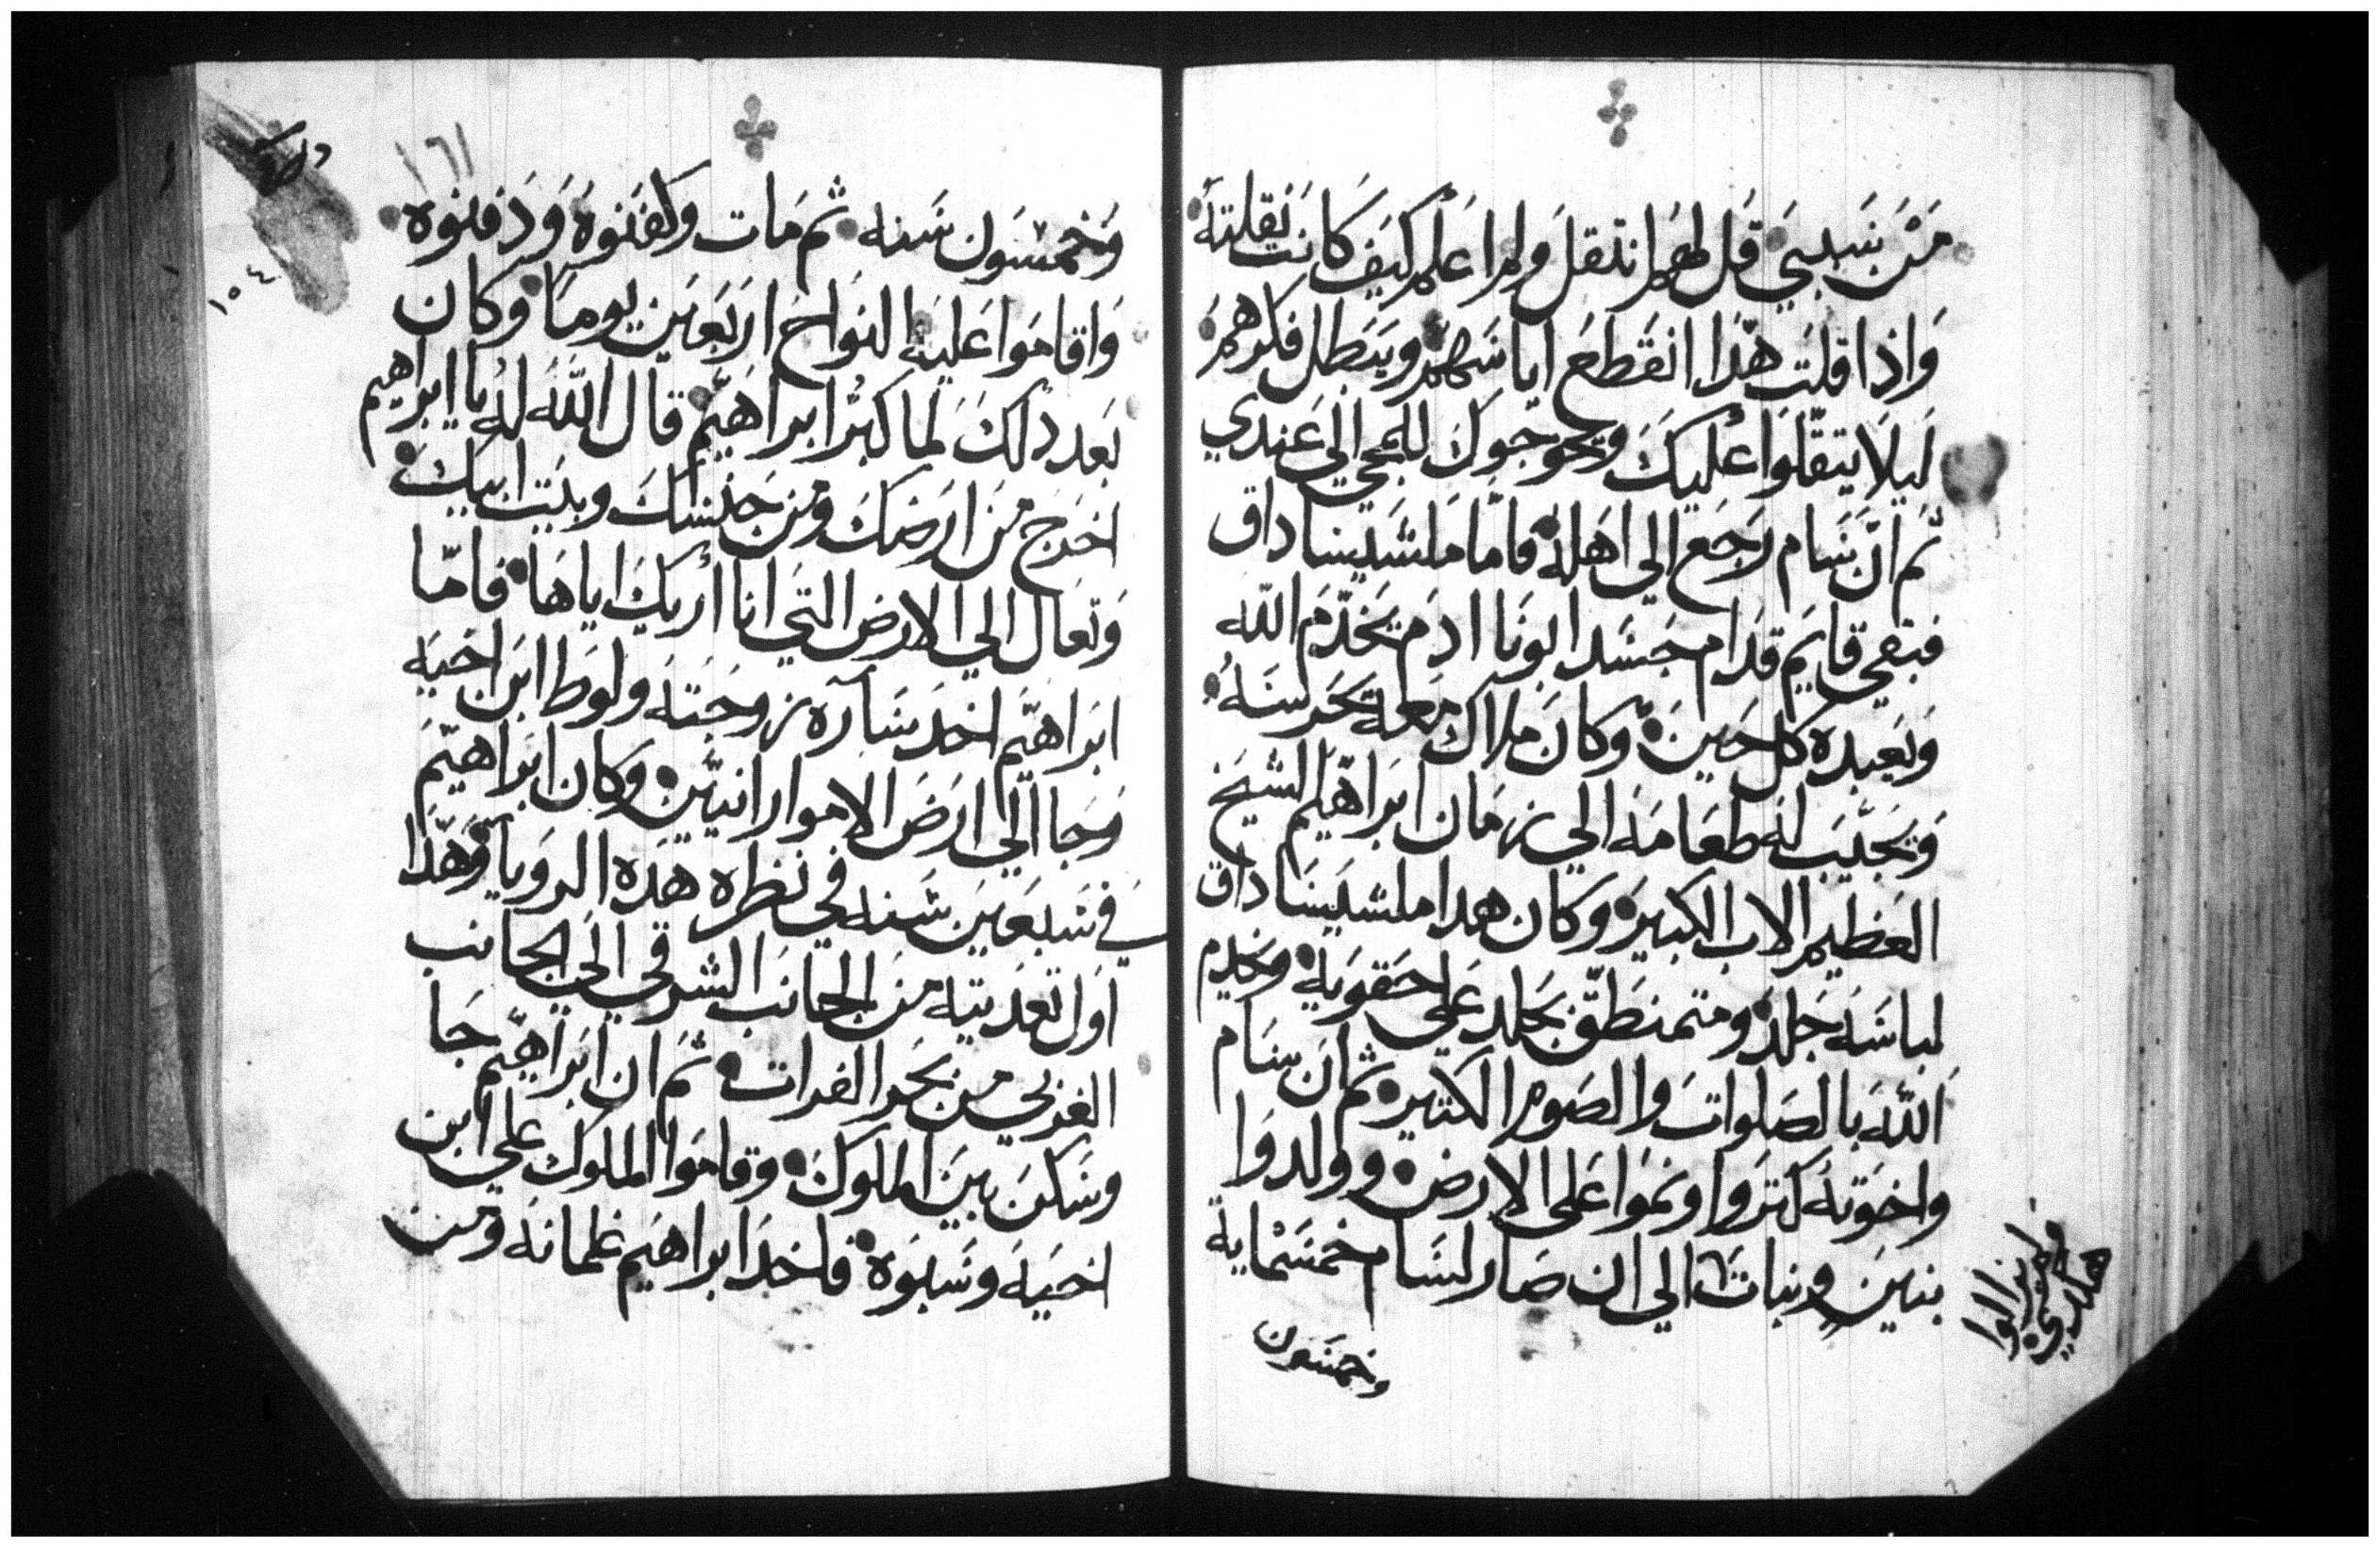 مَن نسبي قل لهم انتقل ولم اعلم كيف كانت نقلته
واذا قلت هذا انقطع اياسهم ويبطل فكرهم
ليلا يتقلوا عليك ويحوجوك للمجي الي عندي
ثم انّ سام رجع الي اهله فامّا ملشيساداق
فبقي قايم قدام جسد ابونا ادم يخدّم الله
ويعبده كل حين وكان ملاك معه يحرسه
ويجيّب له طعامه الي زمان ابراهيم الشيخ
العظيم الاب الكبير وكان هدا ملشيساداق
لباسه جلد ومتمنطق بجلد علي حقويه وخدم
الله بالصلوات والصوم الكتير ثم ان سام
واخوته كتروا ونموا علي الارض وولدوا
بنين وبنات الي ان صار لسام خمسماية
ولم يزالوا
هكدي
وخمسون
١٦١
١٥٤
وخمسون سنه ثم مات وكفنوه ودفنوه
واقاموا عليه النواح اربعين يوما وكان
بعد دلك لما كبر ابراهيم قال الله له يا ابراهيم
اخرج من ارضك ومن جنسك وبيت ابيك
وتعال الي الارض التي انا أريك اياها فامّا
ابراهيم اخد ساره زوجته ولوط ابن اخيه
وجا الي ارض الاموارانيين وكان ابراهيم
في سبعين سنه في نظره هده الرويا وهدا
اول تعديته من الجانب الشرقي الي الجانب
الغربي من بحر الفرات ثم ان ابراهيم جا
وسكن بين الملوك وقاموا الملوك علي ابن
اخيه وسبوه فاخد ابراهيم غلمانه ومن